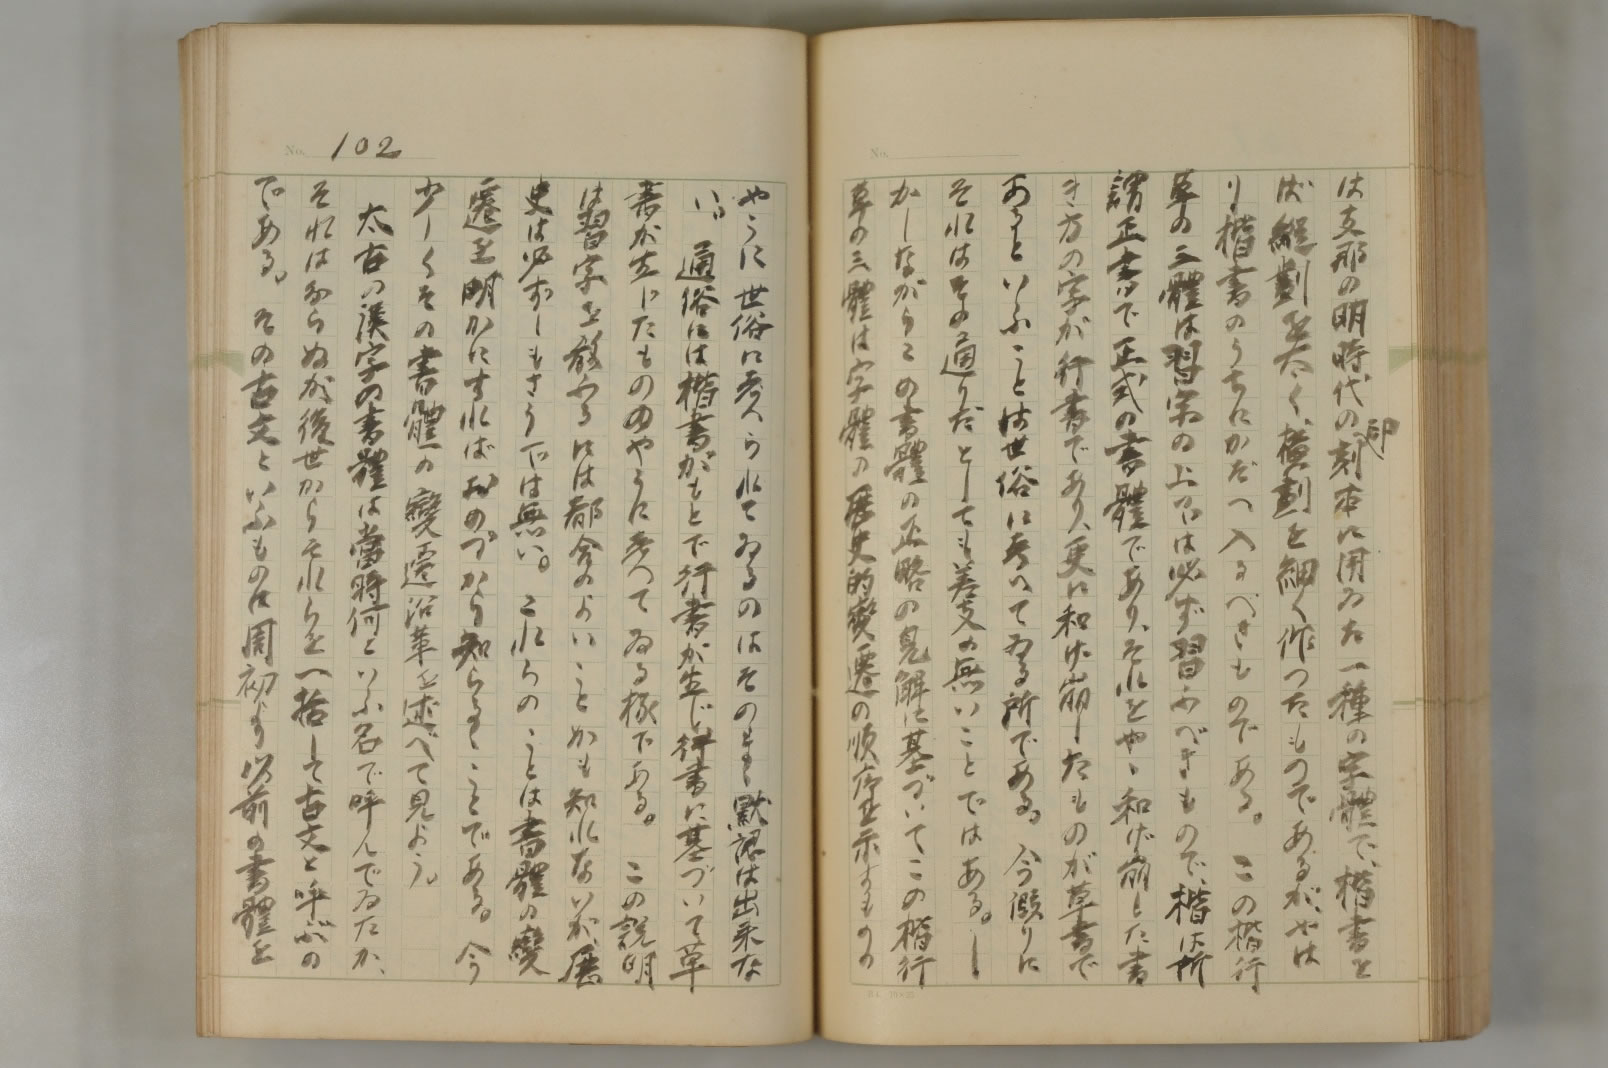 No.
は支那の明時代の刻本に用ゐた一種の字體で、楷書を
印
ば縦劃を太く、横劃を細く作つたものであるが、やは
り楷書のうちにかぞへ入るべきものである。この楷行
草の三體は習字の上では必ず習ふべきもので、楷は所
謂正書で正式の書體であり、それをやゝ和げ崩した書
き方の字が行書であり、更に和げ崩したものが草書で
あるといふことは世俗に考へてゐる所である。今假りに
それはその通りだとしても差支の無いことではある。し
かしながらこの書體の正略の見解に基づいてこの楷行
草の三體は字體の歴史的變遷の順序を示すものの
No. 102
やうに世俗に考へられてゐるのはそのまゝ默認は出來な
い。通俗には楷書がもとで行書が生じ、行書に基づいて草
書が出來たもののやうに考へてゐる様である。この説明
は習字を教ふるには都合のよいことかも知れないが、歴
史は必ずしもさうでは無い。これらのことは書體の變
遷を明かにすればおのづから知らるゝことである。今
少しくその書體の變遷沿革を述べて見よう。
太古の漢字の書體は當時何といふ名で呼んでゐたか、
それは知らぬが後世からそれらを一括して古文と呼ぶの
である。その古文といふものは周初より以前の書體を